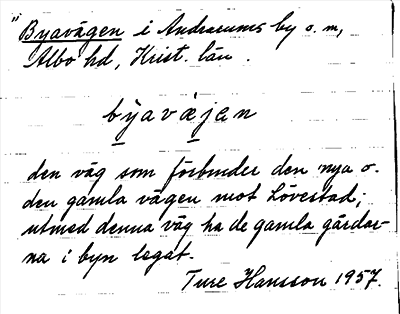 "Byavägen i Andrarums by o. m,
Albo hd, Krist. län.
býavæ̀jan
den väg som förbinder den nya o.
den gamla vägen mot Lövestad;
utmed denna väg ha de gamla gårdar-
na i byn legat.
Ture Hansson 1957.